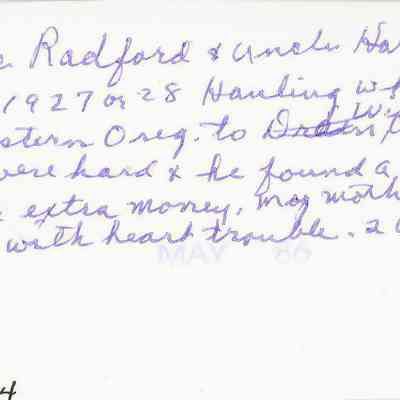 Radford & uncle Ha
1927 or 28 Hauling wh
stern Oreg. to W.
were hard & he found a
extra money, my moth
with heart trouble. 2
MAY 86
4